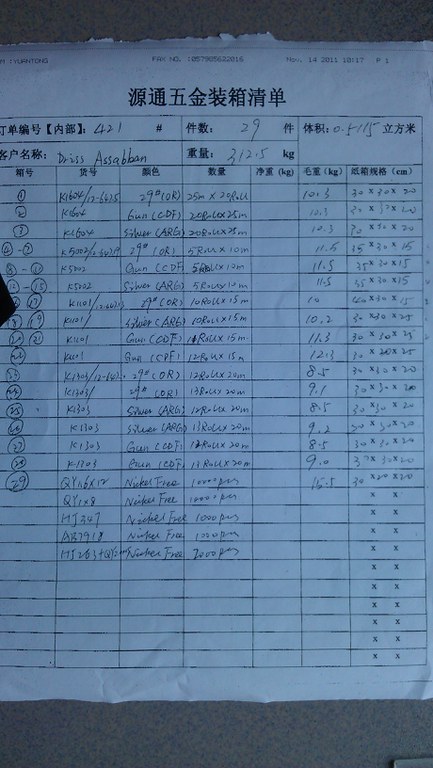 YUANTONG FAX NO. :057985622015 Nov. 14 2011 10:17 P 1
源通五金装箱清单
订单编号【内部】: 421 # 件数: 29 件 体积: 0.5115 立方米
客户名称: Driss Assabban 重量: 312.5 kg
箱号 货号 颜色 数量 净重(kg) 毛重(kg) 纸箱规格(cm)
① K1604/ 29#(OR) 25m x 20Roll 10.3 30 x 30 x 20
② K1604 Gun (CDF) 20Roll x 25m 10.3 30 x 30 x 20
③ K1604 Silver (ARG) 20Roll x 25m 10.3 30 x 30 x 20
④-⑦ K5002/ 29#(OR) 5Roll x 10m 11.5 35 x 30 x 15
K5002 Gun (CDF) 5Roll x 10m 11.5 35 x 30 x 15
K5002 Silver (ARG) 5Roll x 10m 11.5 35 x 30 x 15
K1101 29#(OR) 10Roll x 15m 10 x 30 x 15
⑲ K1101 Silver (ARG) 10Roll x 15m 10.2 30 x 30 x 25
㉑ K1101 Gun (CDF) Roll x 15m 11.3 30 x 30 x 25
K1101 Gun (CDF) 12Roll x 15m 12.3 30 x x 25
K1303 29#(OR) 12Roll x 20m 8.5 30 x 30 x 20
K1303/ 29#(OR) 13Roll x 20m 9.1 30 x 30 x 20
㉕ K1303 Silver (ARG) 12Roll x 20m 8.5 30 x 30 x 20
K1303 Silver (ARG) 13Roll x 20m 9.2 30 x 30 x 20
㉗ K1303 Gun (CDF) Roll x 20m 8.5 30 x 30 x 20
㉘ K1303 Gun (CDF) 13Roll x 20m 9.0 30 x 30 x 20
㉙ QY16x12 Nickel Free 1000pcs 15.5 30 x x 20
Nickel Free 1000pcs x x
HJ347 Nickel Free 1000pcs x x
AB7918 Nickel Free 1000pcs x x
HJ263+QY Nickel Free 2000pcs x x
x x
x x
x x
x x
x x
x x